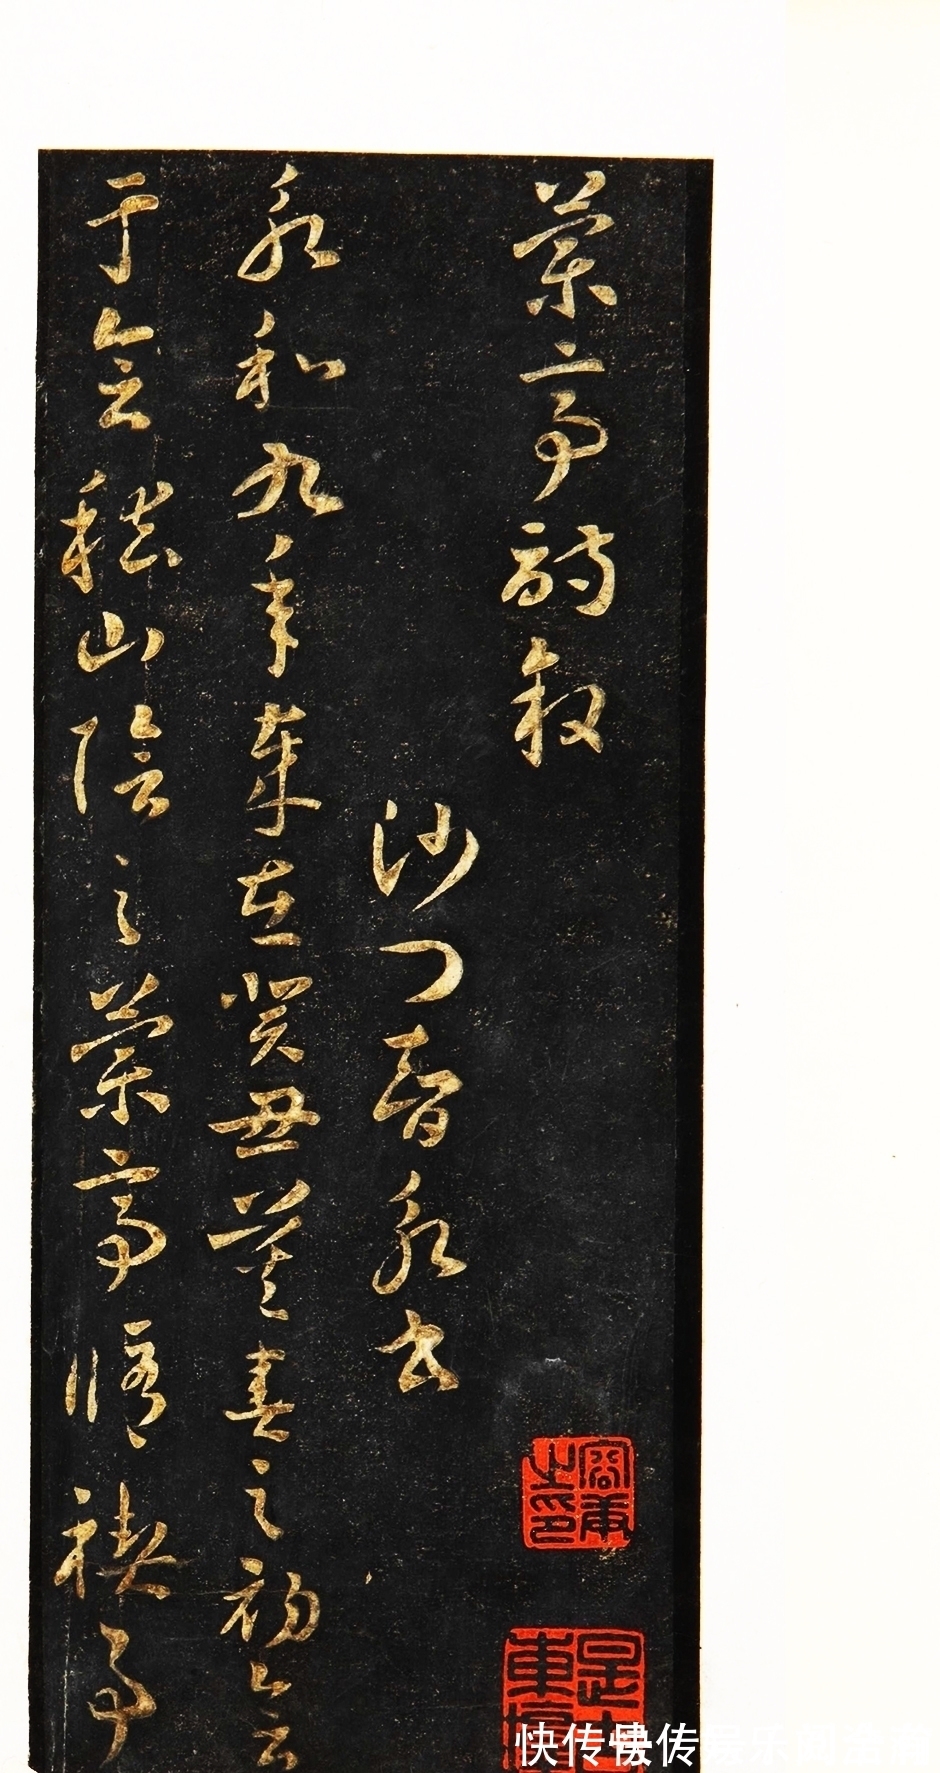 蘭亭詩敘
沙門智永書
永和九年歲在癸丑暮春之初會
于會稽山陰之蘭亭脩禊事
之印
快传